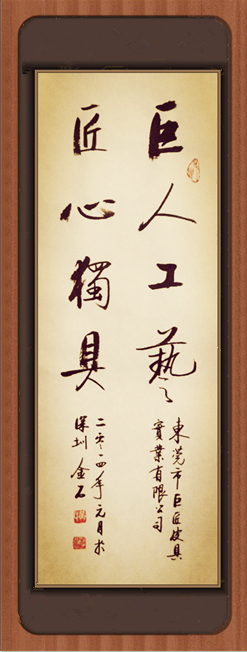 巨人工藝
匠心獨具
東莞市巨匠傢具
實業有限公司
二〇一四年元月於
深圳 金石